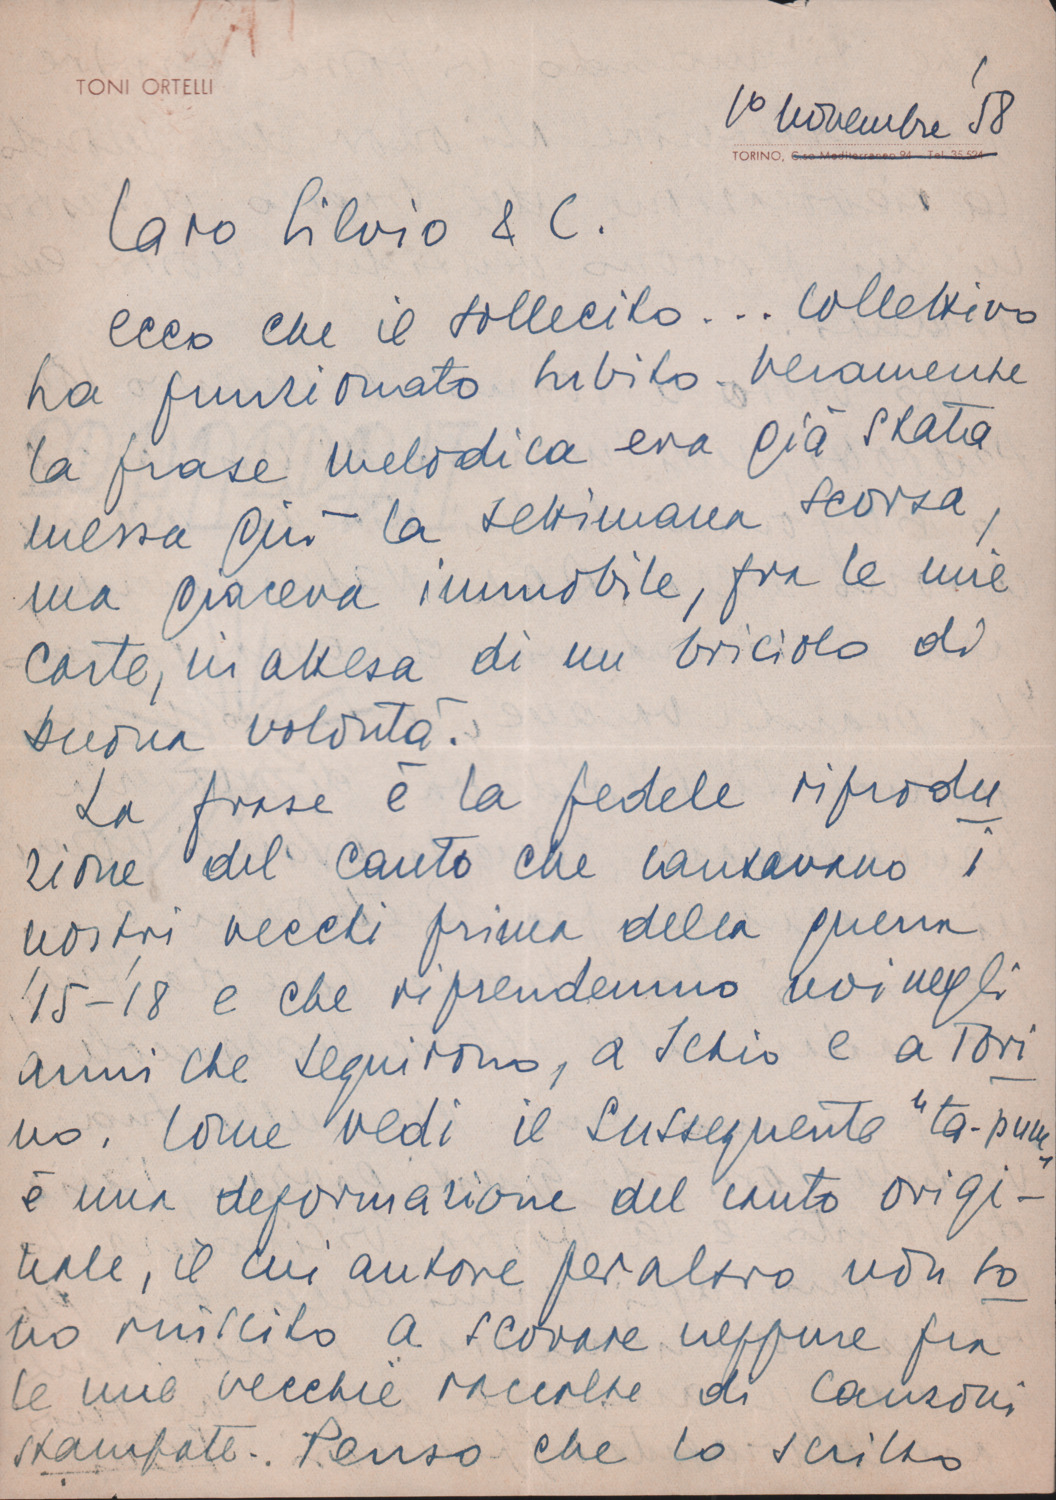 TONI ORTELLI
1° novembre '58
TORINO, C.so Mediterraneo 94 - Tel. 35.524
Caro Silvio & C.
ecco che il sollecito... collettivo
ha funzionato subito. Veramente
la frase melodica era già stata
messa giù la settimana scorsa,
ma giaceva immobile, fra le mie
carte, in attesa di un briciolo di
buona volontà.
La frase è la fedele riprodu
zione del canto che cantavano i
nostri vecchi prima della guerra
'15-'18 e che riprendemmo noi negli
anni che seguirono, a Schio e a Tori
no. Come vedi il susseguente "ta-pum"
è una deformazione del canto origi-
nale, il cui autore peraltro non so
no riuscito a scovare neppure fra
le mie vecchie raccolte di canzoni
stampate. Penso che lo scritto